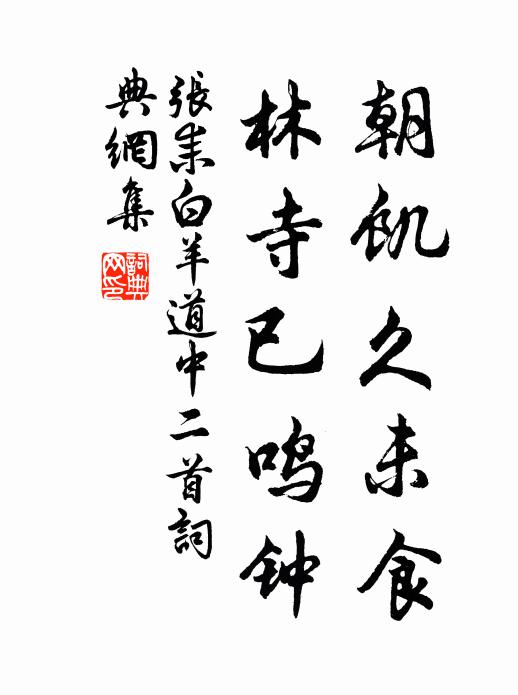 朝飢久未食
林寺已鸣钟
張耒白羊道中二首詞
典網集
詞典网印